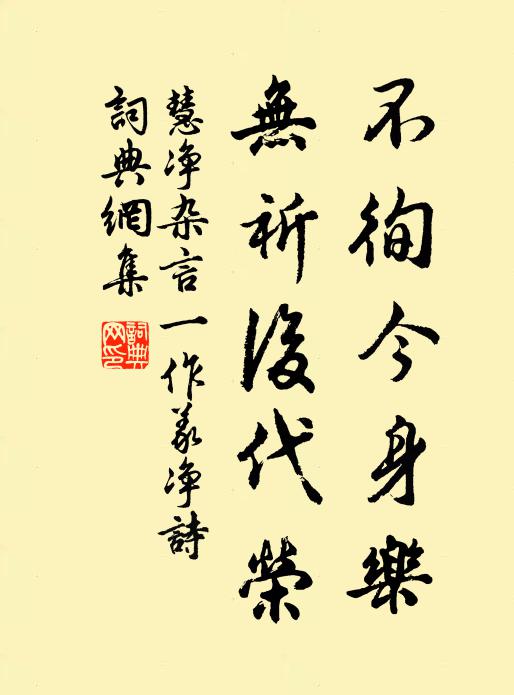 不徇今身樂
無祈後代榮
慧净杂言一作義净詩
詞典網集
詞典
网印